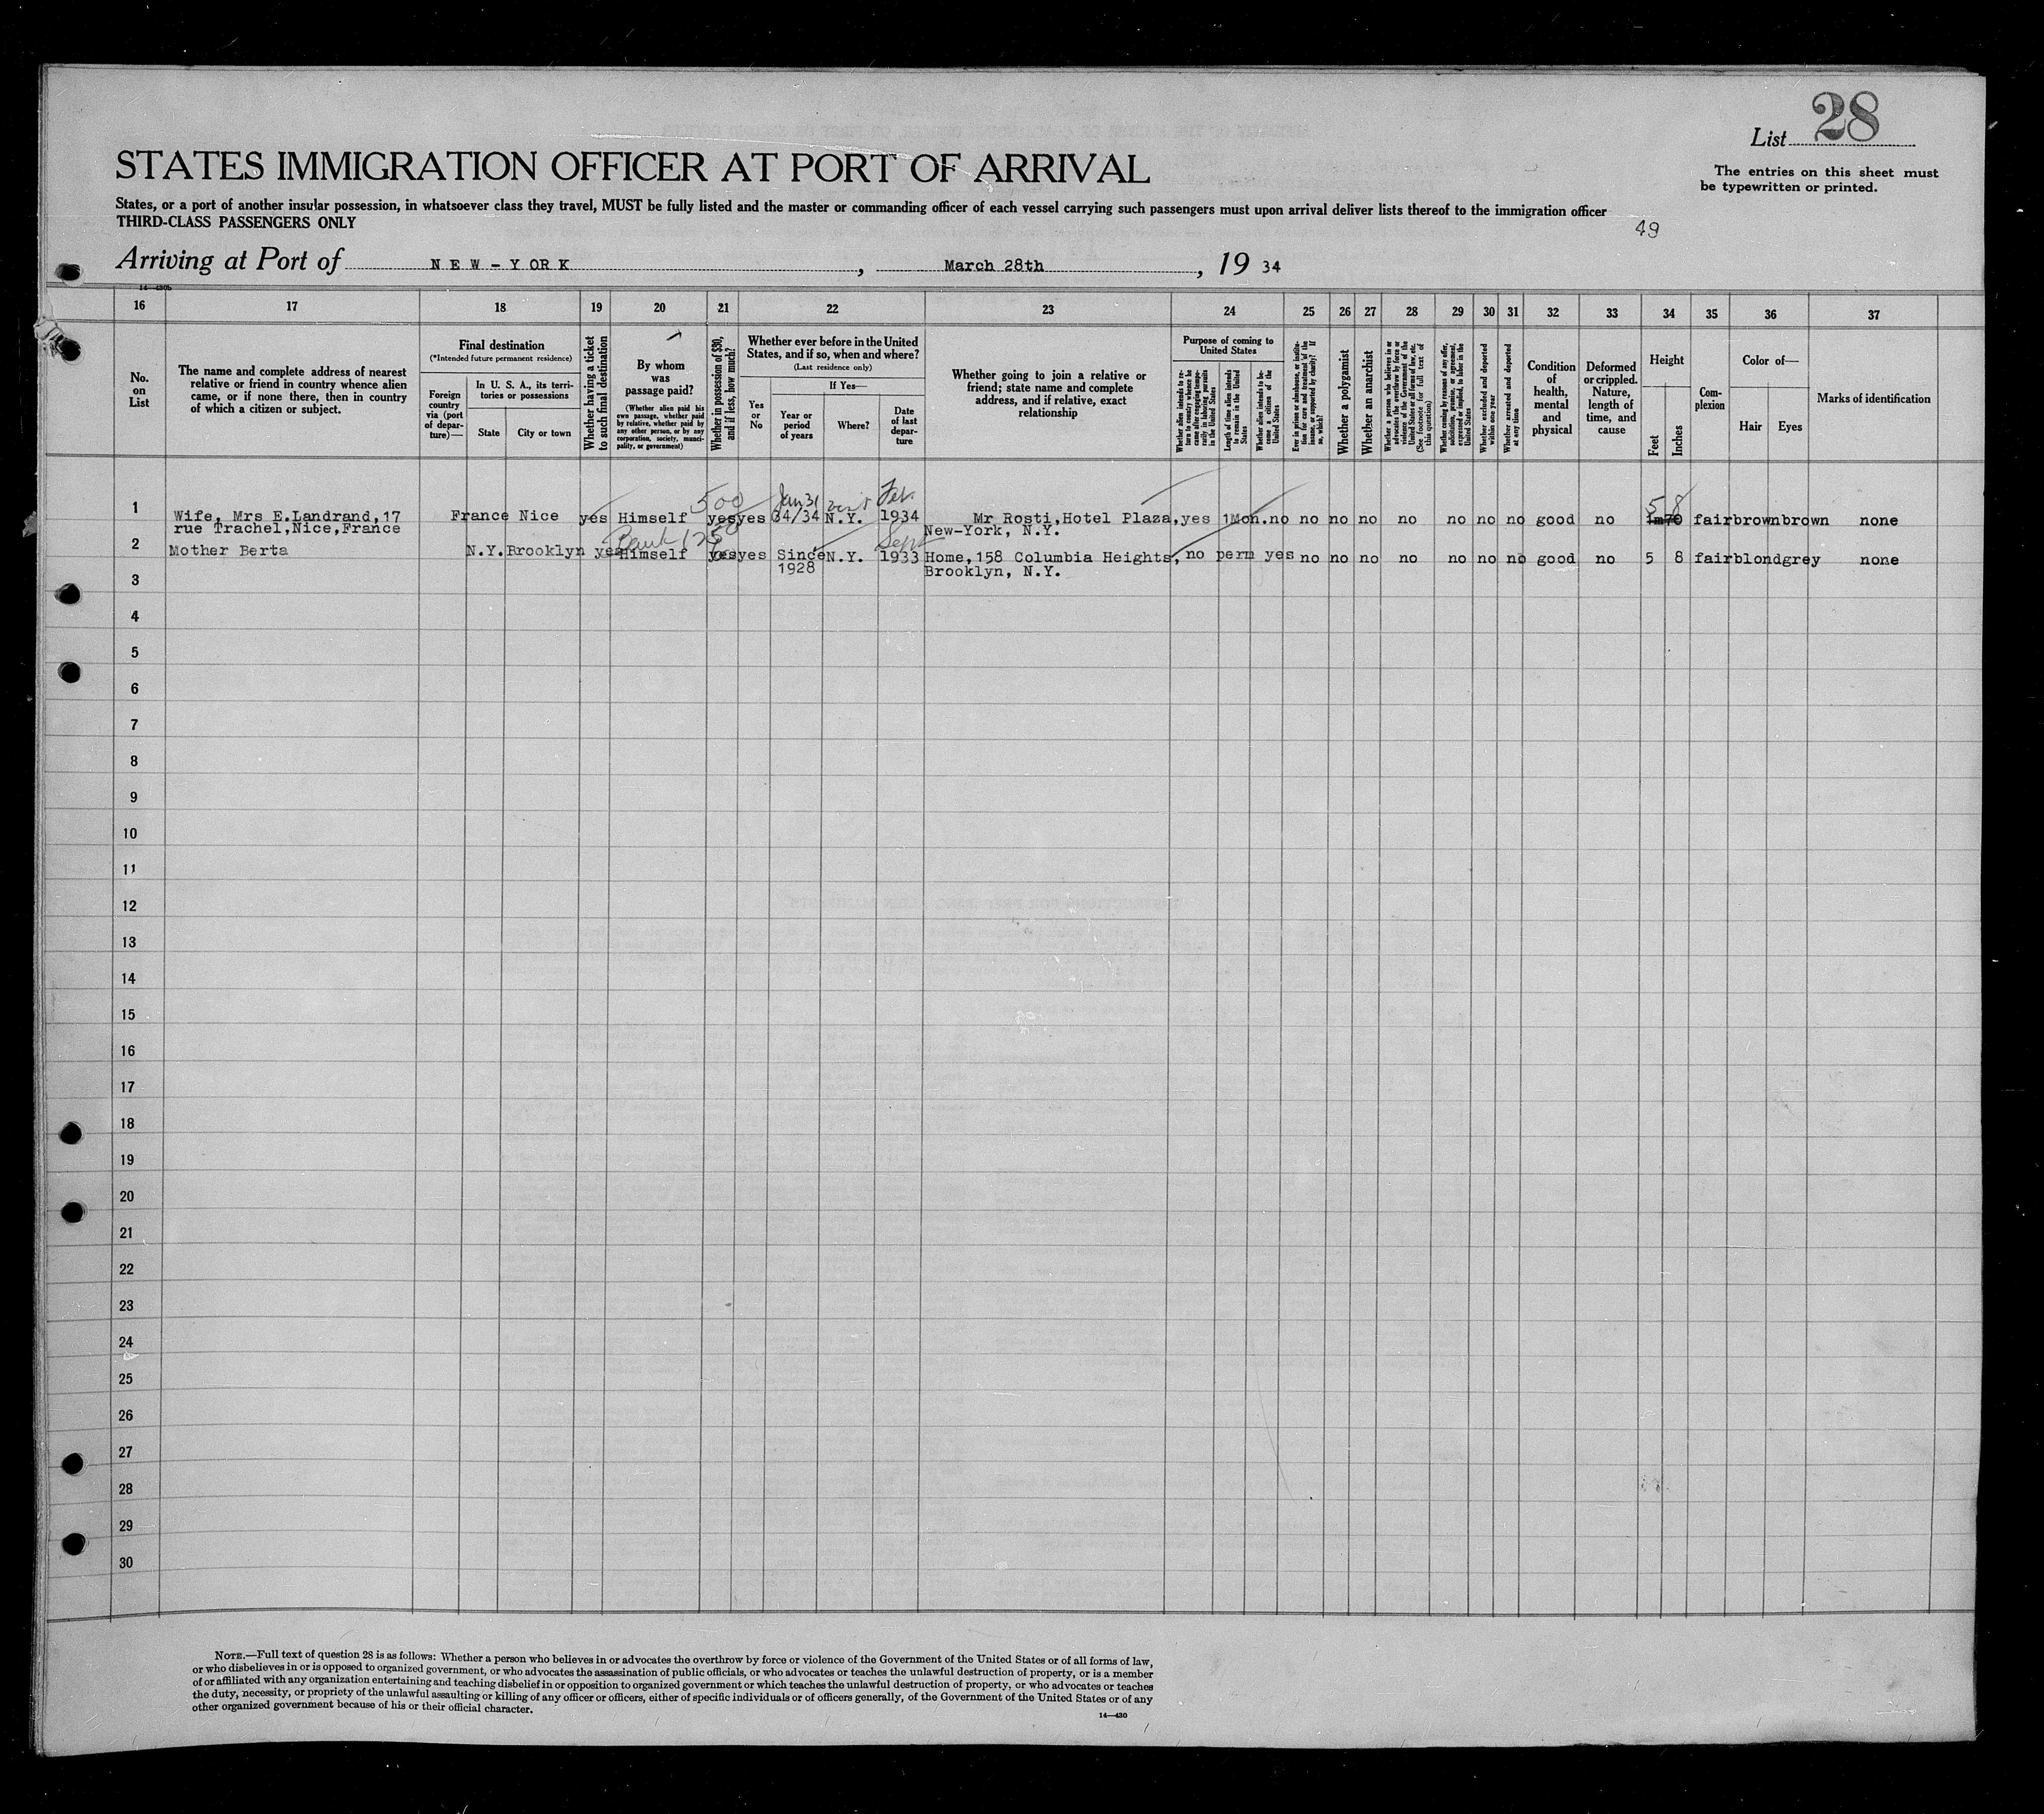 List 28
The entries on this sheet must
be typewritten or printed.
STATES IMMIGRATION OFFICER AT PORT OF ARRIVAL
States, or a port of another insular possession, in whatsoever class they travel, MUST be fully listed and the master or commanding officer of each vessel carrying such passengers must upon arrival deliver lists thereof to the immigration officer
THIRD-CLASS PASSENGERS ONLY
49
Arriving at Port of NEW-YORK, March 28th, 19 34
16 17 18 19 20 21 22 23 24 25 26 27 28 29 30 31 32 33 34 35 36 37
No.
on
List
The name and complete address of nearest
relative or friend in country whence alien
came, or if none there, then in country
of which a citizen or subject.
Final destination
(*Intended future permanent residence)
Foreign
country
via (port
of depar-
ture)—
In U. S. A., its terri-
tories or possessions
State
City or town
Whether having a ticket
to such final destination
By whom
was
passage paid?
(Whether alien paid his
own passage, whether paid
by relative, whether paid by
any other person, or by any
corporation, society, munici-
pality, or government)
Whether in possession of $50,
and if less, how much?
Whether ever before in the United
States, and if so, when and where?
(Last residence only)
Yes
or
No
If Yes—
Year or
period
of years
Where?
Date
of last
depar-
ture
Whether going to join a relative or
friend; state name and complete
address, and if relative, exact
relationship
Purpose of coming to
United States
Whether alien intends to re-
turn to country whence he
came after engaging tempo-
rarily in laboring pursuits
in the United States
Length of time alien intends
to remain in the United
States
Whether alien intends to be-
come a citizen of the
United States
Ever in prison or almshouse, or institu-
tion for care and treatment of the
insane, or supported by charity? If
so, which?
Whether a polygamist
Whether an anarchist
Whether a person who believes in or
advocates the overthrow by force or
violence of the Government of the
United States or all forms of law, etc.
(See footnote for full text of
this question)
Whether coming by reasons of any offer,
solicitation, promise, or agreement,
expressed or implied, to labor in the
United States
Whether excluded and deported
within one year
Whether arrested and deported
at any time
Condition
of
health,
mental
and
physical
Deformed
or crippled.
Nature,
length of
time, and
cause
Height
Feet
Inches
Com-
plexion
Color of—
Hair
Eyes
Marks of identification
500 Jan 31 Feb. 5 8
1 Wife, Mrs E.Landrand,17 France Nice yes Himself yes yes 34/34 N.Y. 1934 Mr Rosti,Hotel Plaza, yes 1Mon. no no no no no no no no good no 1m70 fair brown brown none
rue Trachel,Nice,France New-York, N.Y.
Bank 1250 Sept
2 Mother Berta N.Y. Brooklyn yes Himself yes yes Since N.Y. 1933 Home,158 Columbia Heights, no perm yes no no no no no no no good no 5 8 fair blond grey none
1928 Brooklyn, N.Y.
3
4
5
6
7
8
9
10
11
12
13
14
15
16
17
18
19
20
21
22
23
24
25
26
27
28
29
30
NOTE.—Full text of question 28 is as follows: Whether a person who believes in or advocates the overthrow by force or violence of the Government of the United States or of all forms of law,
or who disbelieves in or is opposed to organized government, or who advocates the assassination of public officials, or who advocates or teaches the unlawful destruction of property, or is a member
of or affiliated with any organization entertaining and teaching disbelief in or opposition to organized government or which teaches the unlawful destruction of property, or who advocates or teaches
the duty, necessity, or propriety of the unlawful assaulting or killing of any officer or officers, either of specific individuals or of officers generally, of the Government of the United States or of any
other organized government because of his or their official character.
14—430